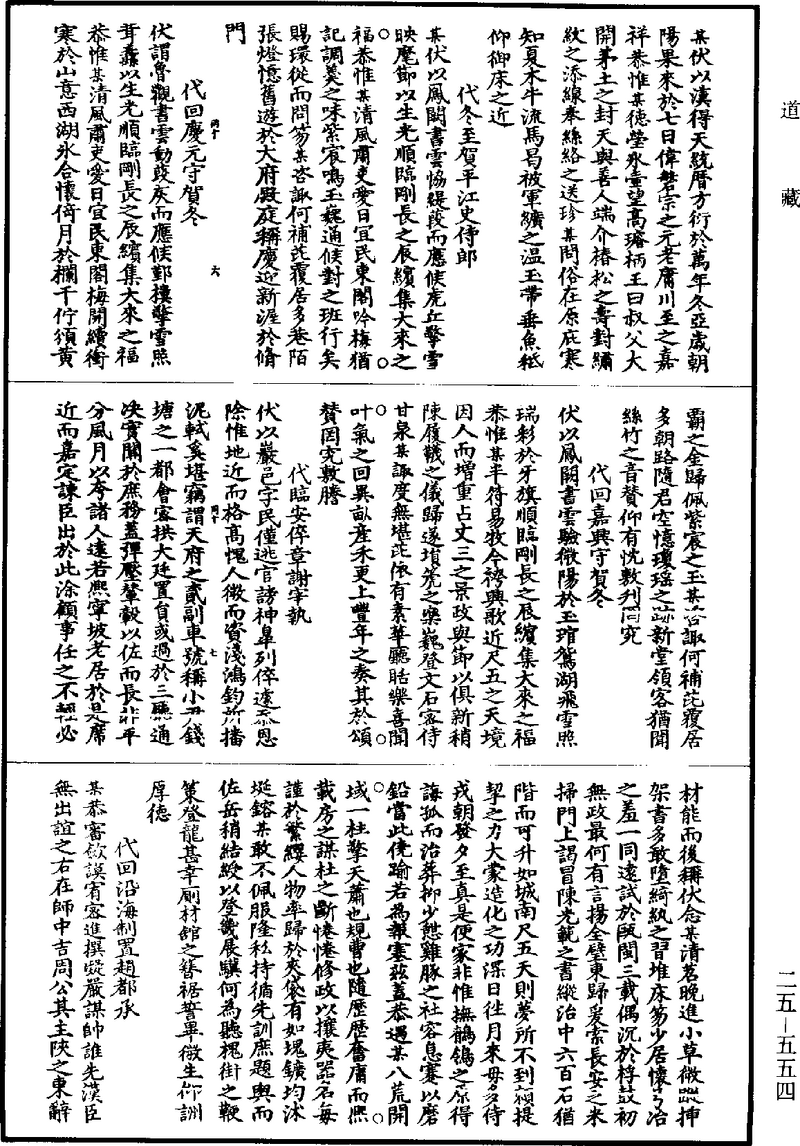 道藏
某伏以漢得天統曆方衍於萬年冬亞歲朝
陽果來於七日偉磐宗之元老膺川至之嘉
祥恭惟某德瑩氷壺望高璿柄王曰叔父大
開茅土之封天與善人端介椿松之壽對繡
紋之添線奉絲絡之送珍某問俗在原庇寒
知夏木牛流馬曷被軍纊之溫玉帶垂魚秪
仰御床之近
代冬至賀平江史侍郎
某伏以鳳闕書雲恊緹葭而應候虎丘擎雪
映麾節以生光順臨剛長之辰纘集大來之
福恭惟某清風肅吏愛日宜民東閣吟梅猶
記調羹之味紫宸鳴玉巍通候對之班行矣
賜環從而問笏某咨諏何補芘覆居多巷陌
張燈憶舊遊於大府殿庭稱慶迎新渥於脩
門
代回慶元守賀冬
伏謂魯觀書雲動葭灰而應候鄞樓擎雪照
茸纛以生光順臨剛長之辰纘集大來之福
恭惟某清風肅吏愛日宜民東閣梅開續衝
寒於山意西湖氷合懷倚月於欄干佇頒黃
霸之金歸佩紫宸之玉某咨諏何補芘覆居
多朝路隨君空憶瓊瑤之跡新堂領客猶聞
絲竹之音贊仰有忱敷列罔究
代回嘉興守賀冬
伏以鳳闕書雲驗微陽於玉琯鴛湖飛雪照
瑞彩於牙旗順臨剛長之辰纘集大來之福
恭惟某半符易牧今袴興歌近尺五之天境
因人而增重占丈三之景政與節以俱新稍
陳履韈之儀歸遂塤箎之樂巍登文石密侍
甘泉某諏度無堪芘依有素華廳恬樂喜聞
叶氣之回異畝產禾更上豐年之奏其於頌
贊罔究敷謄
代臨安倅章謝宰執
伏以嚴邑字民僅逃官謗神臯列倅遽忝恩
除惟地近而格高愧人微而資淺鴻鈞所播
泥軾奚堪竊謂天府之貳副車號稱小尹錢
塘之一都會密拱大廷置員或過於三聽通
決實關於庶務蓋彈壓輦轂以佐而長非平
分風月以夸諸人遠若熈寧坡老居於是席
近而嘉定諫臣出於此涂顧事任之不輕必
材能而後稱伏念某清茗晚進小草微蹤揷
架書多敢墮綺紈之習堆床笏少居懷弓冶
之羞一同遠試於甌閩三載偶沉於桴鼓初
無政最何有言揚全壁東歸爰索長安之米
掃門上謁冒陳光範之書縱治中六百石猶
階而可升如城南尺五天則夢所不到顧提
挈之力大蒙造化之功深日徃月來毋多侍
戎朝發夕至真是便家非惟撫鶺鴒之原得
誨孤而治葬抑少憩雞豚之社容息蹇以磨
鉛當此僥踰若為報塞茲蓋恭遇某八荒開
域一柱擎天蕭也規曹也隨歷歷奮庸而熈
載房之謀杜之斷惓惓修政以攘夷器名每
謹於繁纓人物率歸於夾袋有如塊鑛均沐
埏鎔某敢不佩服隆私持循先訓庶題輿而
佐岳稍結綬以登畿展驥何為聽槐街之鞭
策登龍甚幸厠材舘之簪裾誓畢微生仰詶
厚德
代回沿海制置趙都承
某恭審敘謨宥密進撰凝嚴謀帥誰先漢臣
無出誼之右在師中吉周公其主陝之東辭
二五－五五四